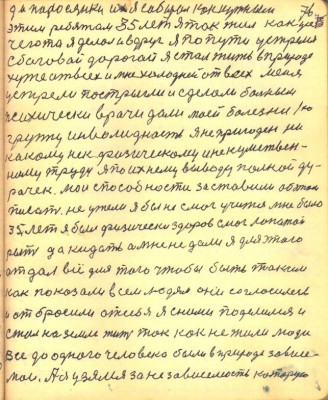 76
этим ребятам 35 лет я так жил как все
чего то я делал и вдруг я по пути встретил
с боговой дорогой я стал жить в природе
хуже всех и мне холодней от всех меня
встрели постригли и сделали больным
психически врачи дали моей болезни 1ю
группу инвалидность я непригоден ни
какому ник физическому и неумствен-
ному труду я по ихнему выводу полной ду-
рачек. мои способности заставили об этом
писать. не ужели я бы не смог учится мне было
35 лет я был физически здоров смог лопатой
рыть да кидать а мне не дали я для этого
отдал всё для того чтобы быть таким
как показали всем людям они согласились
и от бросили от себя я с ними поделился и
стал на земле жить так как не жили люди
все до одного человека были в природе зависе-
мое. А я узялся за не зависемость которую